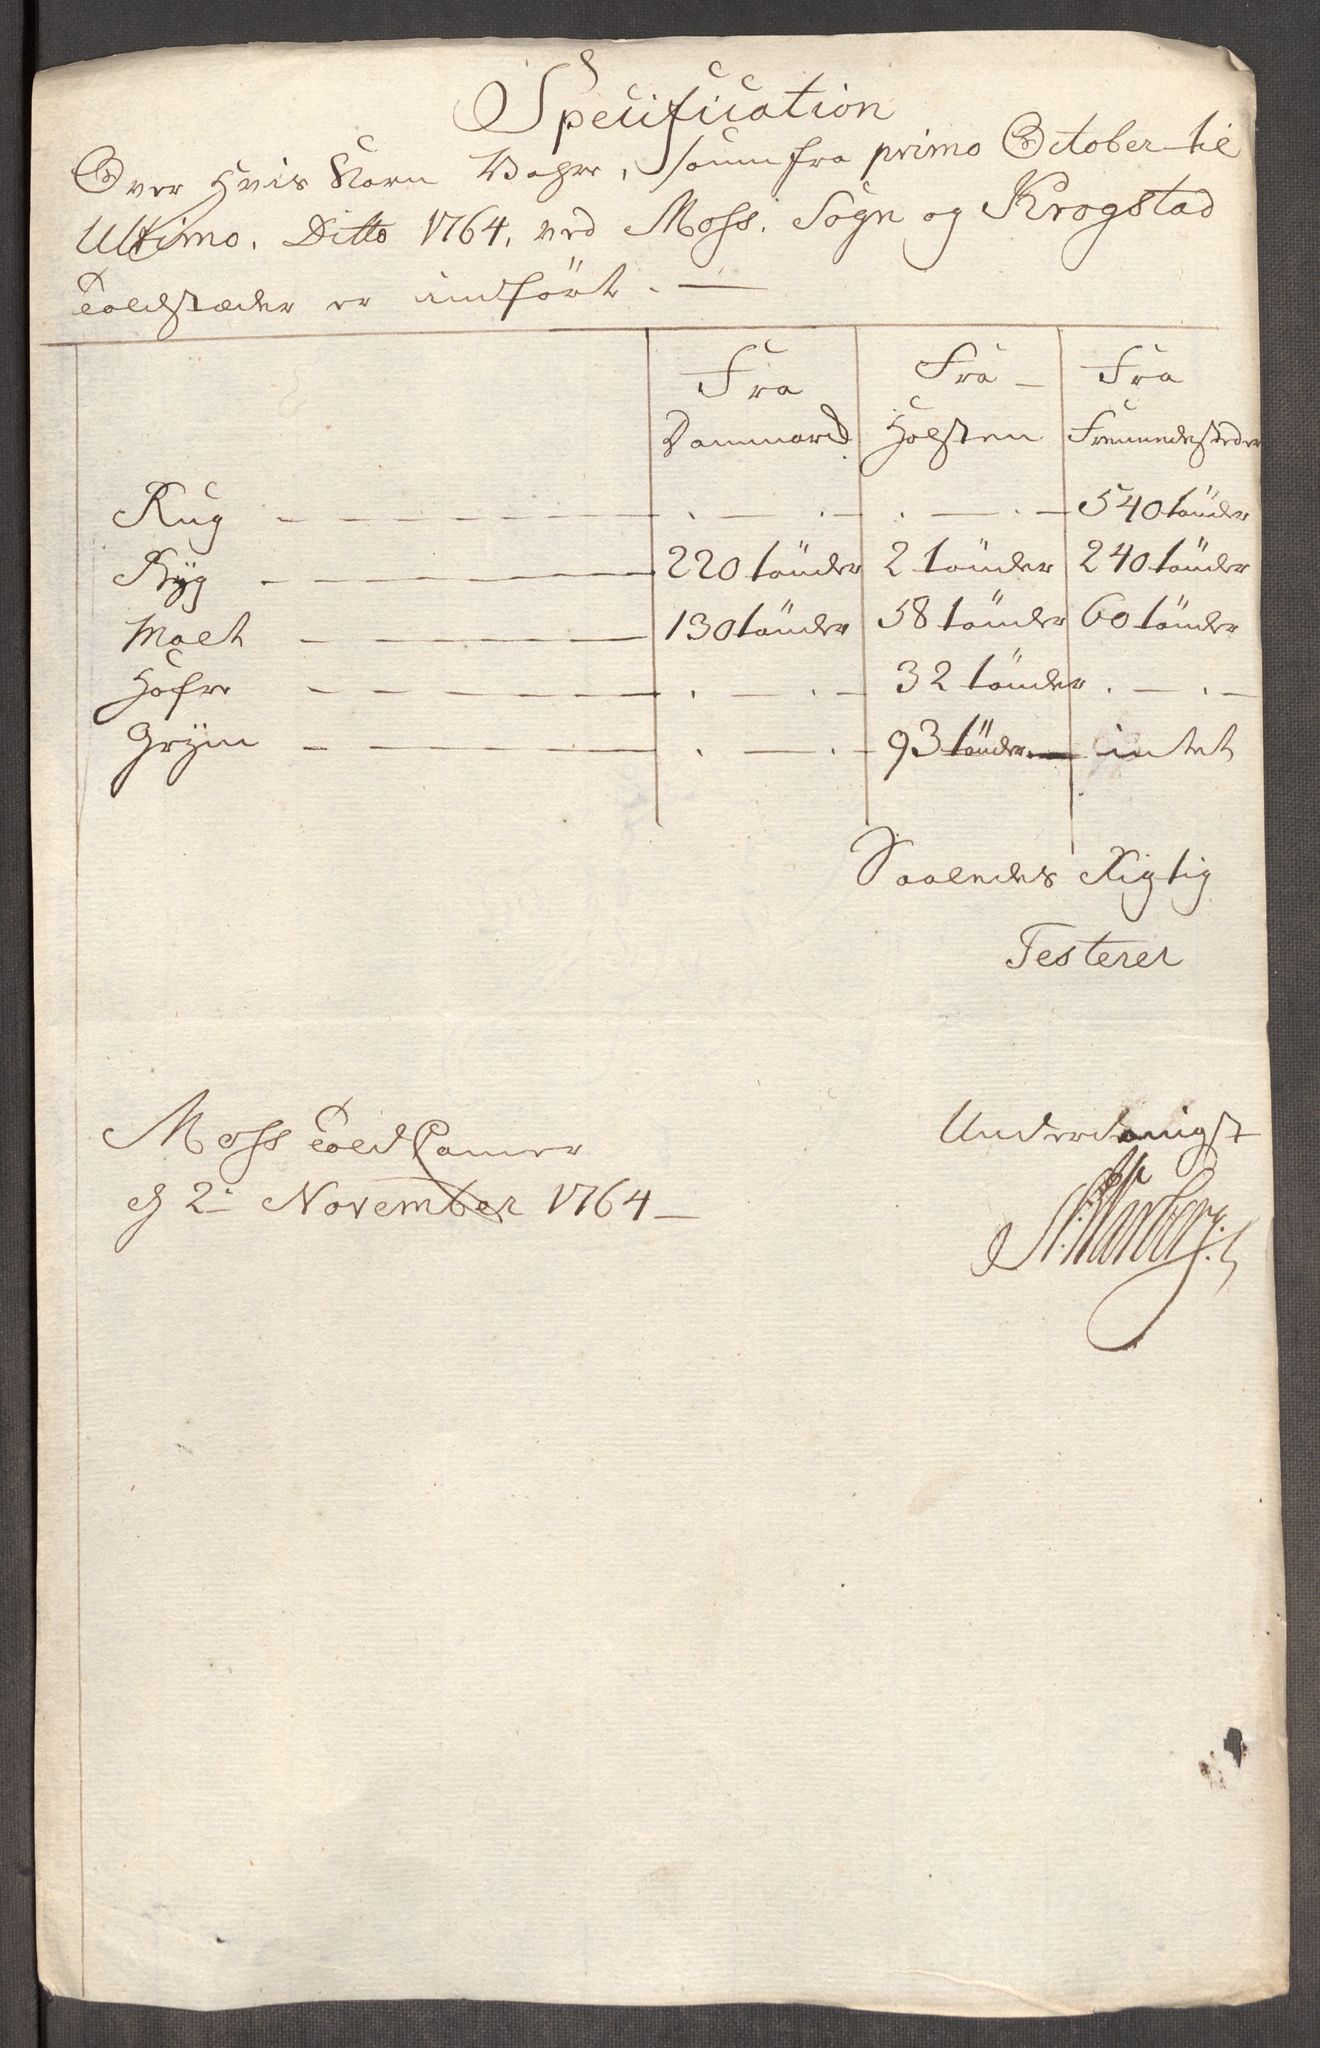 Specification
Over Hvis Korn Vahre, som fra primo October til
Ultimo. Ditto 1764. ved Moss. Sogn og Krogstad
Toldstæder er indført. —
Fra Danmarck
Fra Holsten
Fra Fremmedesteder
Rug — — . — . . — . — 540 tönder
Byg — 220 tönder 2 tönder 240 tönder
Malt — 130 tönder 58 tönder 60 tönder
Hafre — — . — . — 32 tönder . — . —
Gryn — — . — . — 93 tönder — intet
Saaledes Rigtig
Testerer
Moss Told Camer
d 2. November 1764 —
Underdanigst